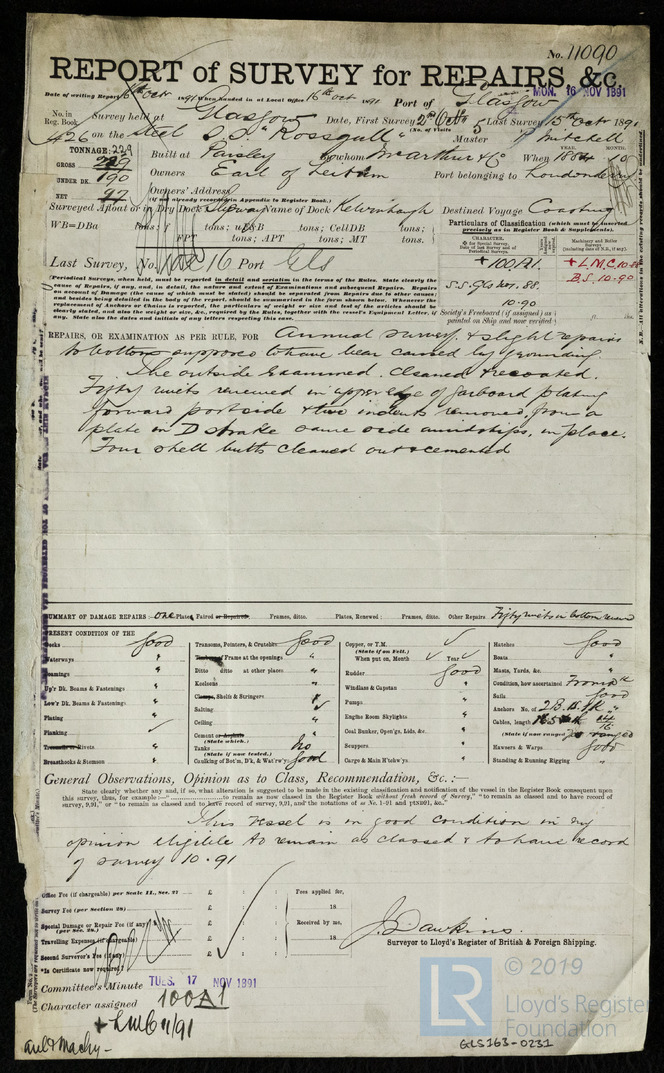 No. 11090
REPORT of SURVEY for REPAIRS, &c.
MON. 16 NOV 1891
Date of writing Report 16th Octr 1891 When handed in at Local Office 16th Oct 1891 Port of Glasgow
No. in Reg. Book 426 Survey held at Glasgow Date, First Survey 2nd Octr Last Survey 15th Octr 1891
(No. of Visits 5)
on the Steel S.S. "Rossgull" Master Mitchell
TONNAGE: 229
GROSS 229
UNDER DK. 190
NET 97
Built at Paisley By whom McArthur & Co When 1884 10
YEAR. MONTH.
Owners Earl of Leitrim Port belonging to Londonderry
Owners' Address
(if not already recorded in Appendix to Register Book.)
Surveyed Afloat or in Dry Dock Slipway Name of Dock Kelvinhaugh Destined Voyage Coasting
WB=DBa tons: f tons; uE&B tons; CellDB tons;
FPT tons; APT tons; MT tons.
Particulars of Classification (which must be inserted precisely as in Register Book & Supplements).
CHARACTER.
Last Survey, No. 16 Port Gls
+100A1.
S.S. Gls No1. 88.
10.90
+L.M.C. 10.88
B.S. 10.90
(Periodical Surveys, when held, must be reported in detail and seriatim in the terms of the Rules. State clearly the
cause of Repairs, if any, and, in detail, the nature and extent of Examinations and subsequent Repairs. Repairs
on account of Damage (the cause of which must be stated) should be separated from Repairs due to other causes;
and besides being detailed in the body of the report, should be summarised in the form shown below. Whenever the
replacement of Anchors or Chains is reported, the particulars of weight and size and test of the articles should be
clearly stated, and also the weight or size, &c., required by the Rules, together with the vessel's Equipment Letter, if
any. State also the dates and initials of any letters respecting this case.
Society's Freeboard (if assigned) as painted on Ship and now verified ft. ins.
REPAIRS, OR EXAMINATION AS PER RULE, FOR Annual survey, & slight repairs
to bottom supposed to have been caused by grounding.
The outside examined. Cleaned & recoated.
Fifty rivets renewed in upper edge of garboard plating
forward port side & two indents removed, from a
plate in D strake same side amidships, in place.
Four shell butts cleaned out & cemented
SUMMARY OF DAMAGE REPAIRS:- one Plates, Faired or Repaired. Frames, ditto. Plates, Renewed: Frames, ditto. Other Repairs Fifty rivets in bottom renewed
PRESENT CONDITION OF THE
Decks Good
Waterways "
Coamings "
Up'r Dk. Beams & Fastenings "
Low'r Dk. Beams & Fastenings "
Plating "
Planking ✓
Treenails or Rivets "
Breasthooks & Stemson "
Transoms, Pointers, & Crutches Good
Timbers of Frame at the openings "
Ditto ditto at other places "
Keelsons "
Clamps, Shelfs & Stringers "
Salting ✓
Ceiling "
Cement or Asphalte "
(State which.)
Tanks No
(State if now tested.)
Caulking of Bot'm, D'k, & Wat'rw'ys Good
Copper, or Y.M. ✓
(State if on Felt.)
When put on, Month ✓ Year ✓
Rudder Good
Windlass & Capstan "
Pumps "
Engine Room Skylights "
Coal Bunker, Open'gs, Lids, &c. "
Scuppers "
Cargo & Main H'tchw'ys "
Hatches Good
Boats "
Masts, Yards, &c. "
Condition, how ascertained From
Sails Good
Anchors No. of 2B. 1S. 1K
Cables, length
(State if now ranged)
Hawsers & Warps Good
Standing & Running Rigging "
General Observations, Opinion as to Class, Recommendation, &c.:—
State clearly whether any, and if so, what alteration is suggested to be made in the existing classification and notification of the vessel in the Register Book consequent upon
this survey, thus, for example:—" to remain as now classed in the Register Book without fresh record of Survey," "to remain as classed and to have record of
survey, 9,91," or "to remain as classed and to have record of survey, 9,91, and the notations of ss No. 1-91 and ptND91, &c."
This vessel is in good condition in my
opinion eligible to remain as classed & to have record
of survey 10.91
Office Fee (if chargeable) per Scale II., Sec. 27 £ : :
Survey Fee (per Section 28) £ : :
Special Damage or Repair Fee (if any) (per Sec. 28.) £ : :
Travelling Expenses (if chargeable) £ : :
Second Surveyor's Fee (if any) £ : :
*Is Certificate now required?
Fees applied for,
18
Received by me,
18
J. Dawkins.
Surveyor to Lloyd's Register of British & Foreign Shipping.
Committee's Minute TUES. 17 NOV 1891
Character assigned 100A1
+LMC 11/91
© 2019
LR
Lloyd's Register
Foundation
GLS163-0231